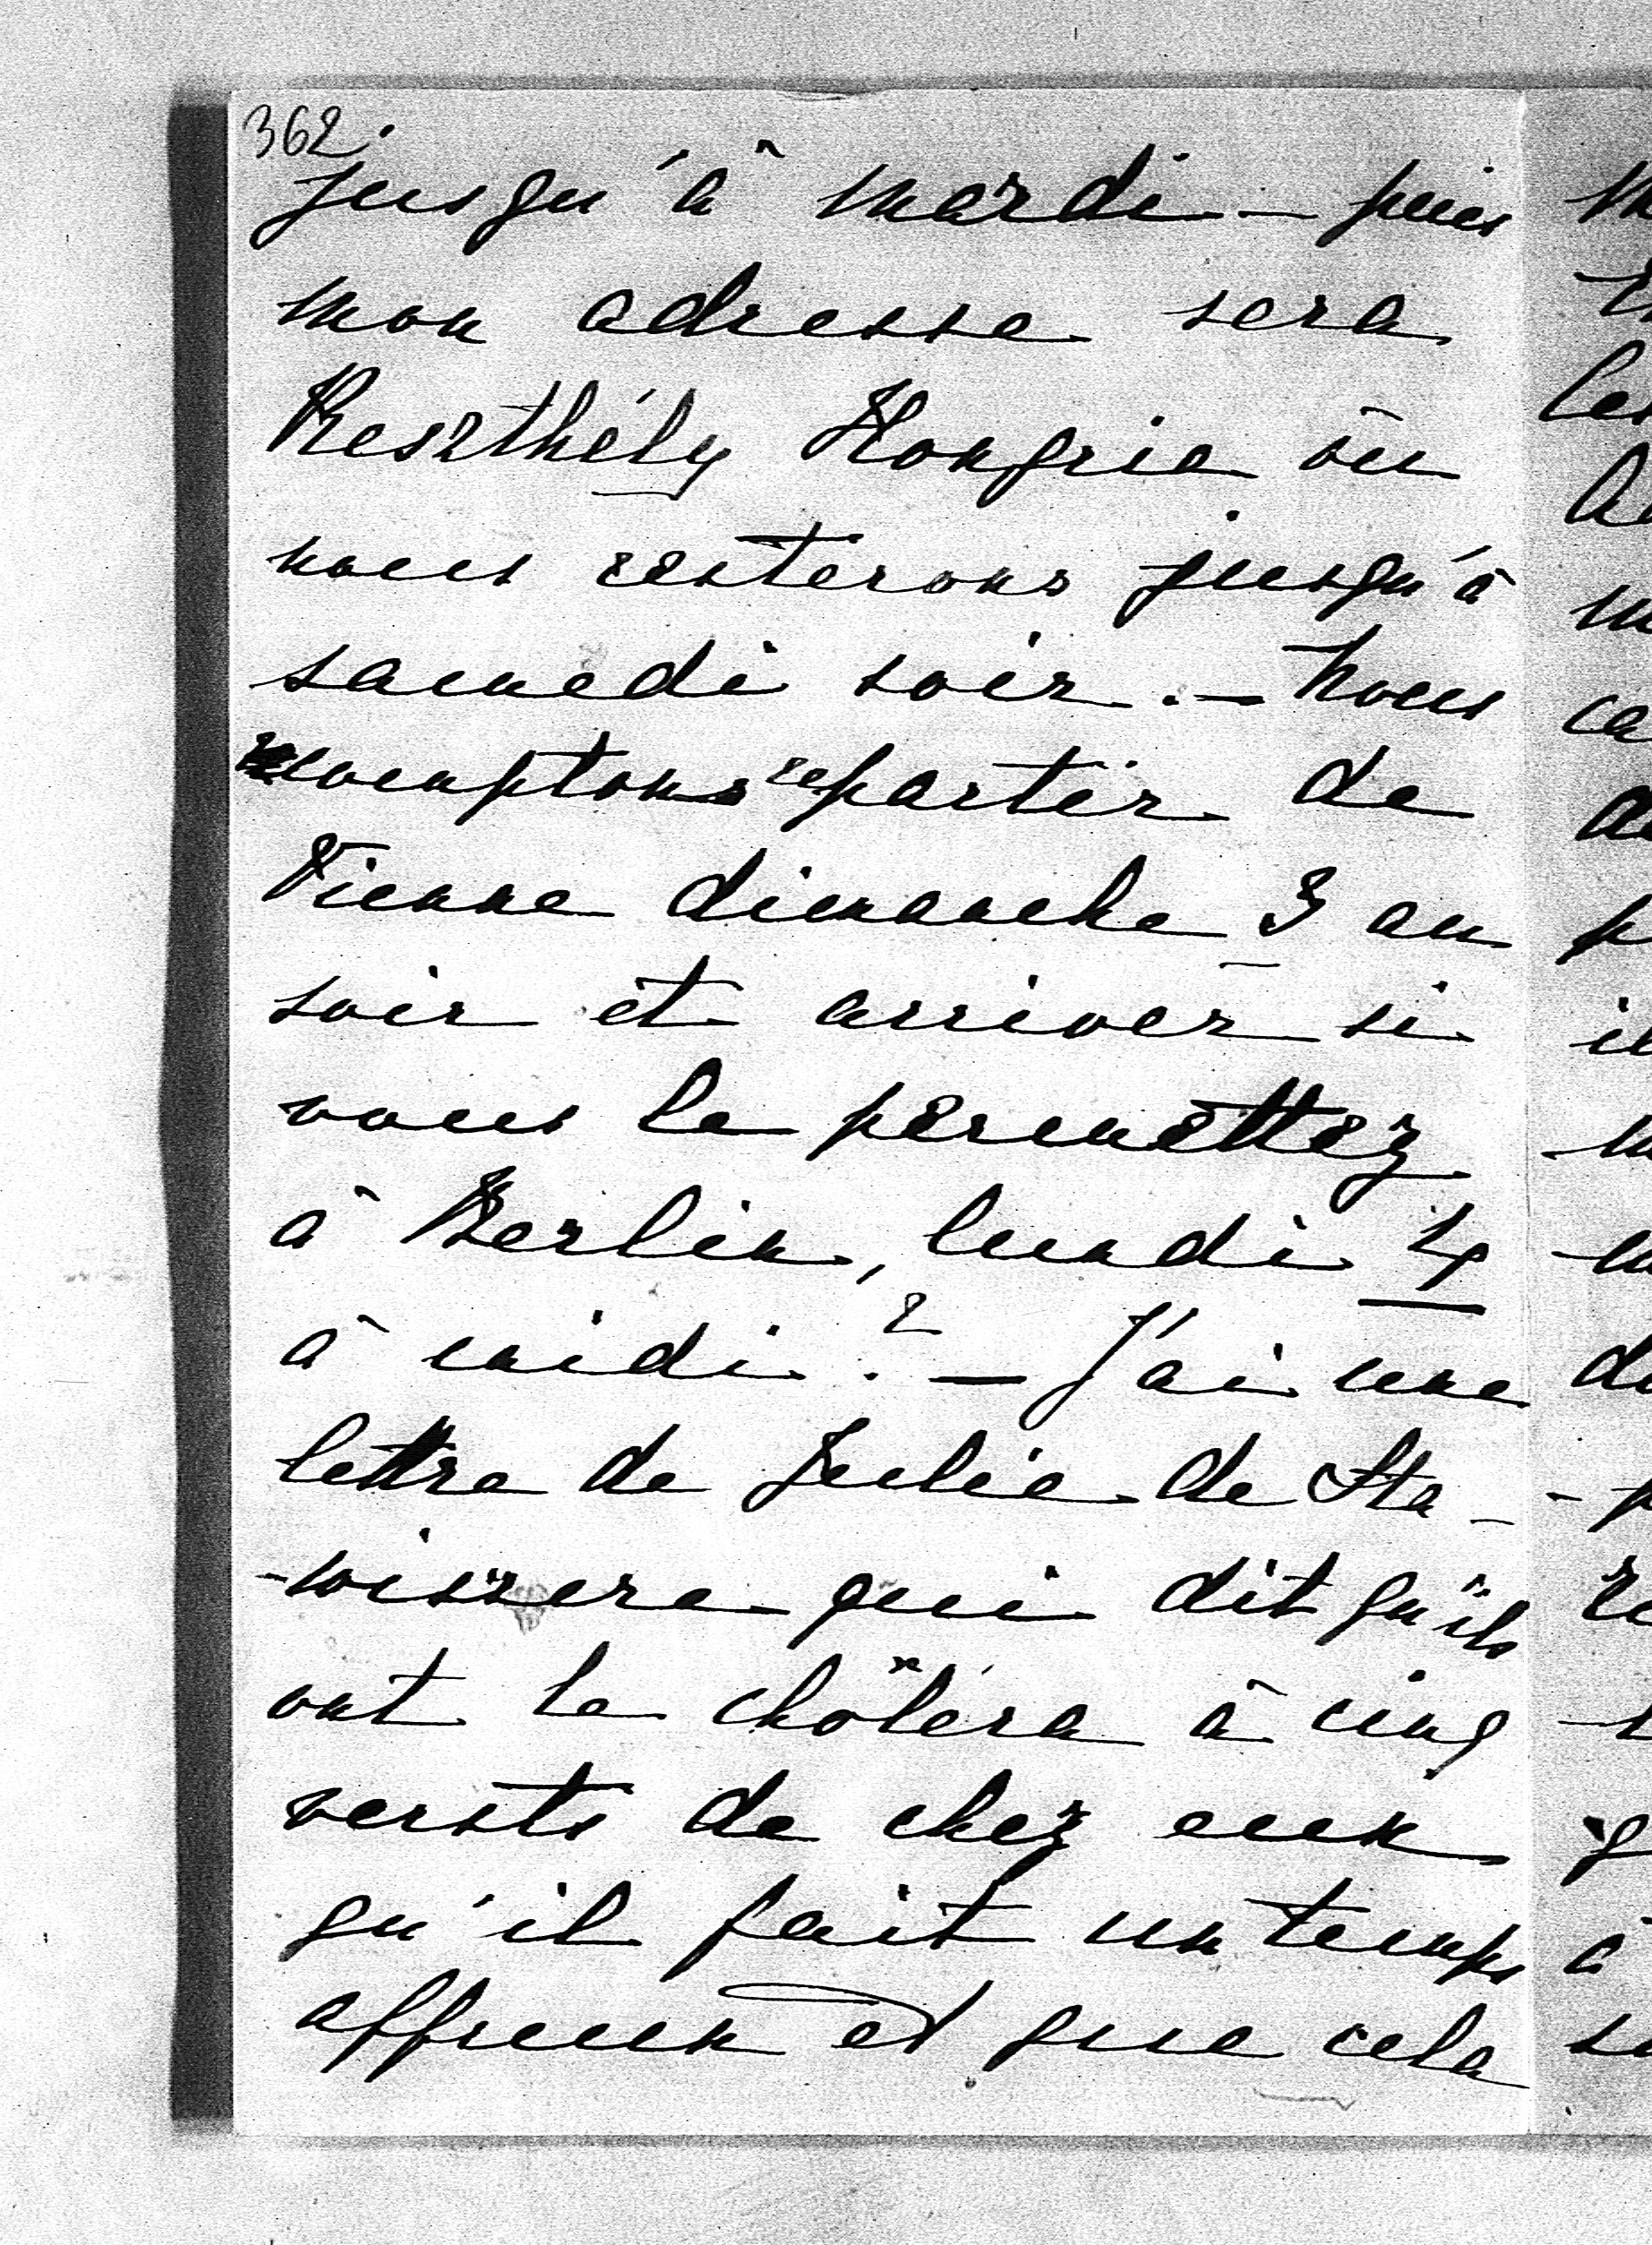 362
jusqu'à mardi - puis
mon adresse sera
Keszthély Hongrie où
nous resterons jusqu'à
samedi soir. - Nous
comptons repartir de
Vienne dimanche 3 au
soir et arriver si
vous le permettez
à Berlin, lundi 4
à midi? - J'ai une
lettre de Julie de Sta-
-wiszcze qui dit qu'ils
ont le choléra à cinq
versts de chez eux
qu'il fait un temps
affreux et que cela